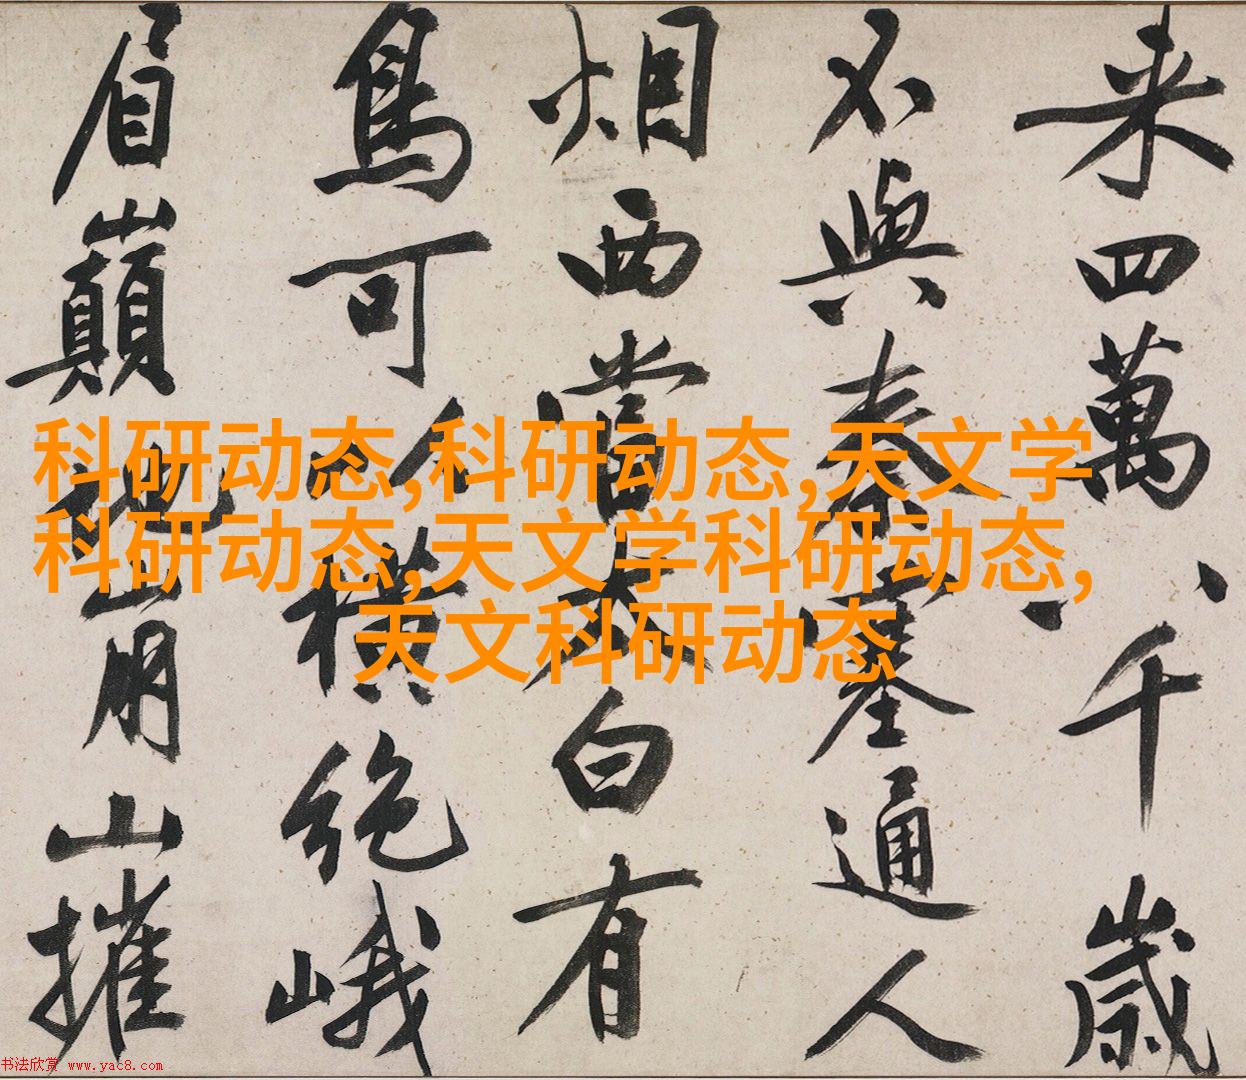 来四萬八千歲
不與秦塞通人
烟西當太白有
鳥可以橫絶峨
眉巔地崩山摧
科研动态,科研动态,天文学
科研动态,天文学科研动态,
天文科研动态
书法欣赏 www.yac8.com